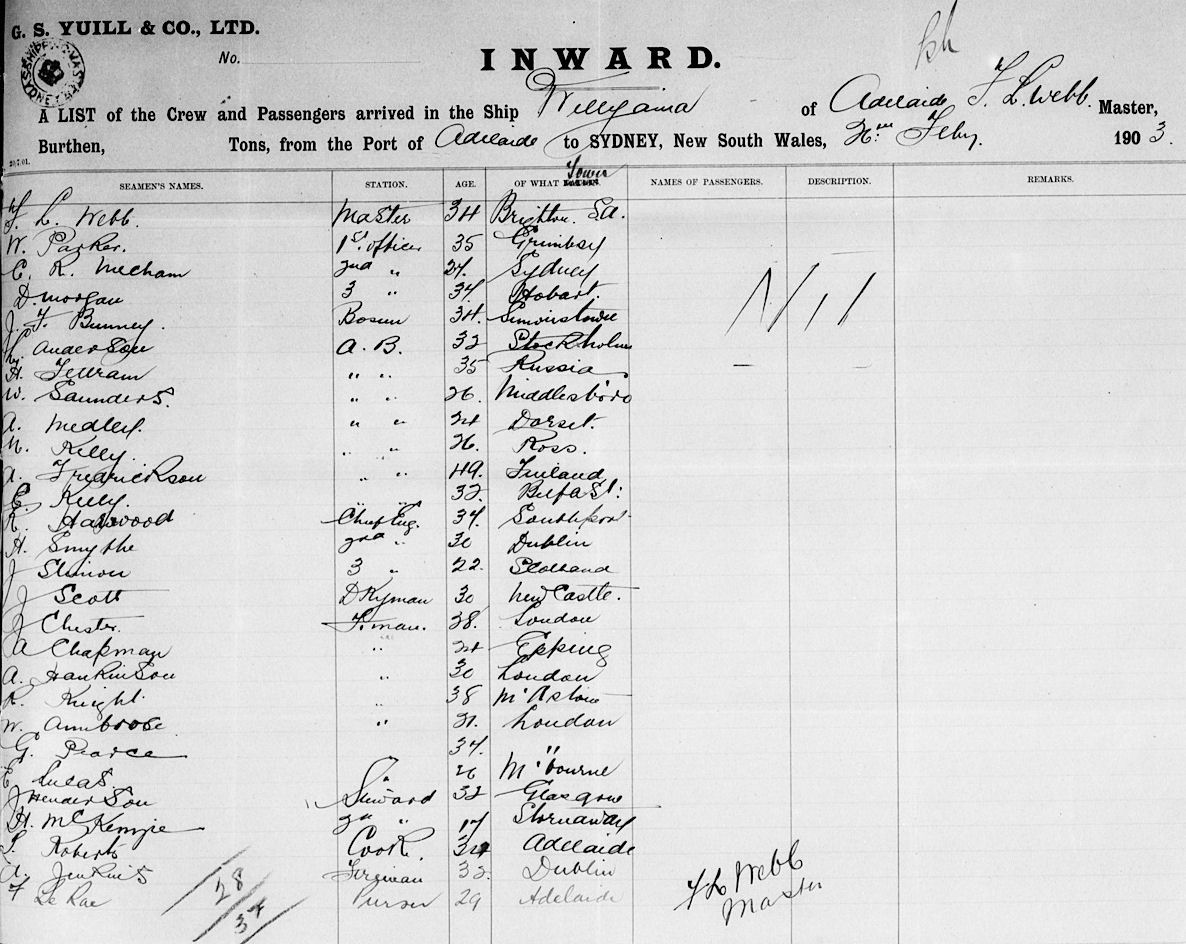 G. S. YUILL & CO., LTD.
No.
INWARD.
A LIST of the Crew and Passengers arrived in the Ship Willyama of Adelaide F. L. Webb. Master,
Burthen, Tons, from the Port of Adelaide to SYDNEY, New South Wales, Feby. 1903.
20.7.01.
SEAMEN'S NAMES. STATION. AGE. OF WHAT Town NAMES OF PASSENGERS. DESCRIPTION. REMARKS.
F. L. Webb. Master 34 Brighton. S.A.
W. Parker. 1st officer 35 Grimsby
C. R. Mecham 2nd " Sydney
D. Morgan 3 " 34 Hobart.
Nil
J. F. Bunney. Bosun 34.
Anderson A. B. 32 Stockholm
H. " " 35 Russia
W. Saunders. " " 26. Middlesboro
A. Medley. " " 24 Dorset.
Kelly " " 26. Ross.
A. Fredrickson " " 49. Finland
Kelly. " " 32. Belfast.
R. Chief Eng. 34. Southport
H. Smythe 2nd " 30 Dublin
J Stinson 3 " 22. Scotland
J Scott DKyman 30 New Castle.
J Chester. F.man. 38. London
A Chapman " 24 Epping
A. Hankinson " 30 London
R. Knight " 38
W. Ambrose " London
G. Pearce 34. "
Lucas " 26 M'bourne
J Henderson Steward 32 Glasgow
H. McKenzie 2nd " 17 Stornaway
Roberts Cook. 34 Adelaide
A. Jenkins Fireman 33. Dublin
F Le Rae Purser 29 Adelaide
28
34
F L Webb
Master